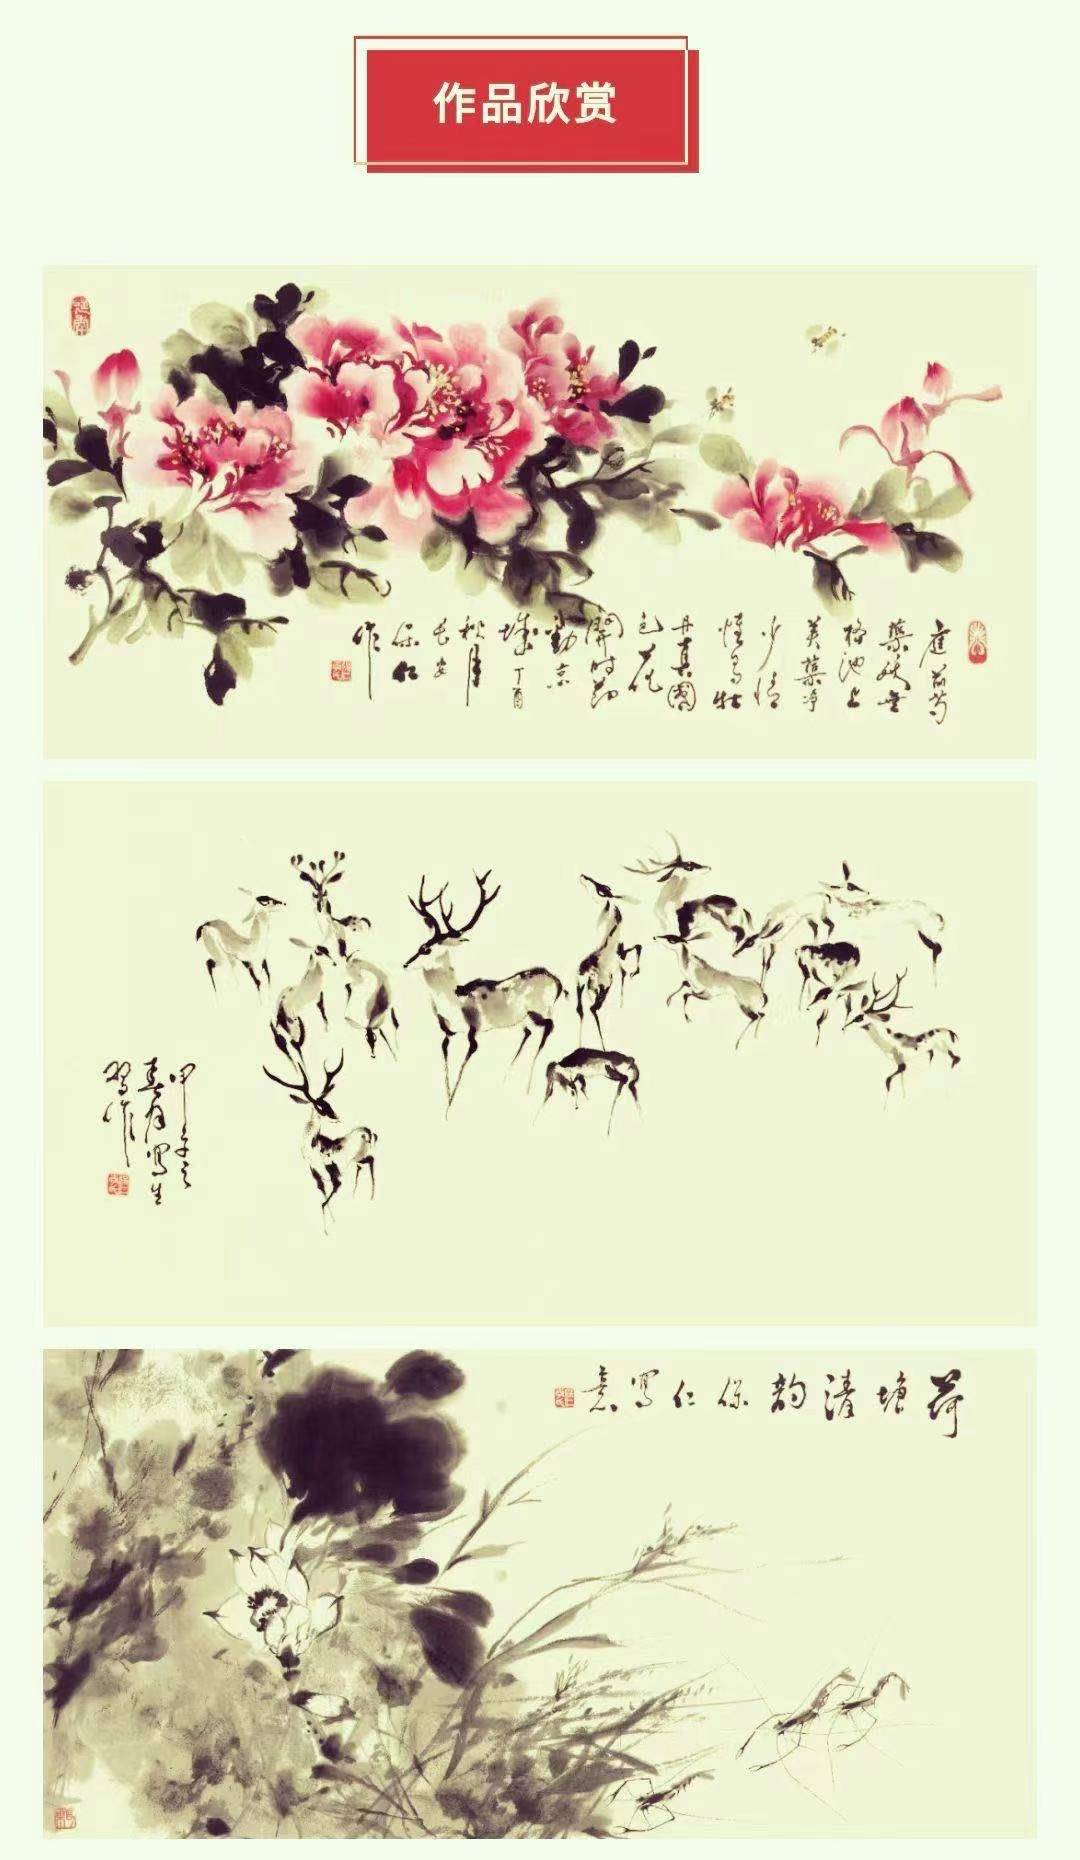 作品欣赏
庭前芍
药妖无
格池上
芙蕖净
少情
惟有牡
丹真国
色花
开时节
动京
城丁酉
秋月
长安
保仁
作
甲午之
春月写生
保仁作
荷塘清韵保仁写意